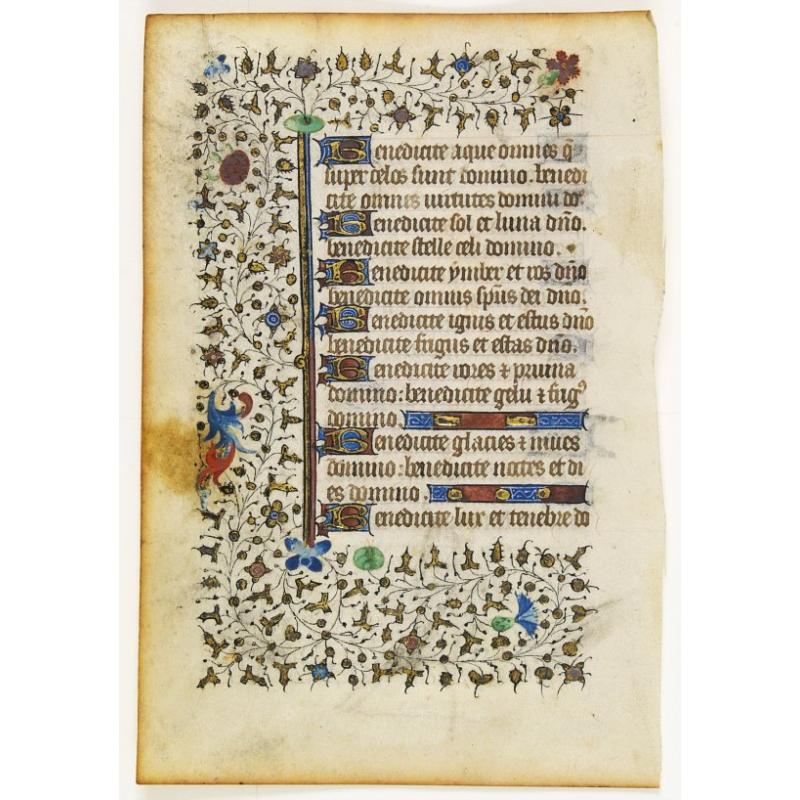 Benedicite aque omnes q̄
super celos sunt domino. benedi
cite omnes uirtutes domini do.
Benedicite sol et luna dn̄o.
benedicite stelle celi domino.
Benedicite ymber et ros dn̄o
benedicite omnis sp̄us dei dn̄o.
Benedicite ignis et estus dn̄o
benedicite frigus et estas dn̄o.
Benedicite rores ⁊ pruina
domino: benedicite gelu ⁊ frigꝰ
domino.
Benedicite glacies ⁊ niues
domino: benedicite noctes et di
es domino.
Benedicite lux et tenebre do